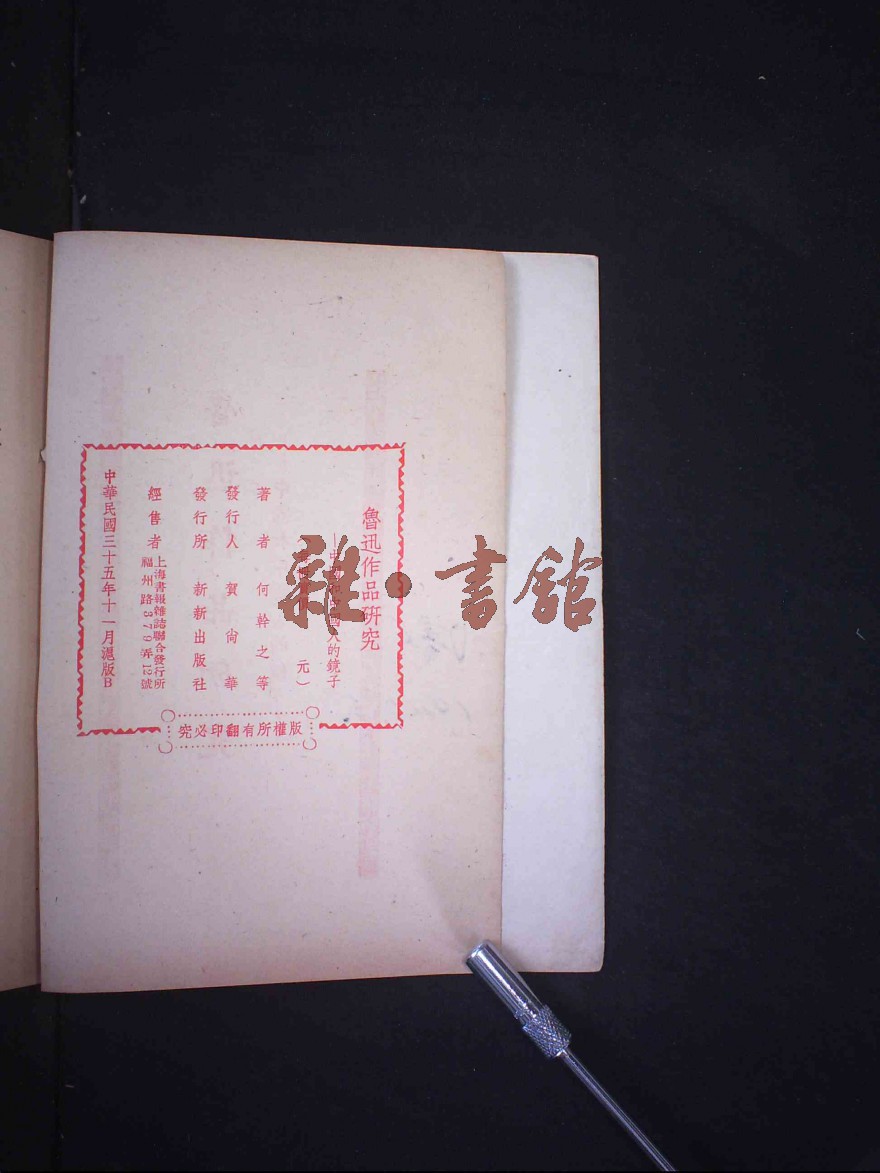 魯迅作品研究
—中國和中國人的鏡子
元）
著者 何幹之等
發行人 賀尙華
發行所 新新出版社
經售者 上海書報雜誌聯合發行所
福州路379弄12號
中華民國三十五年十一月滬版B
版權所有翻印必究
雜·書館